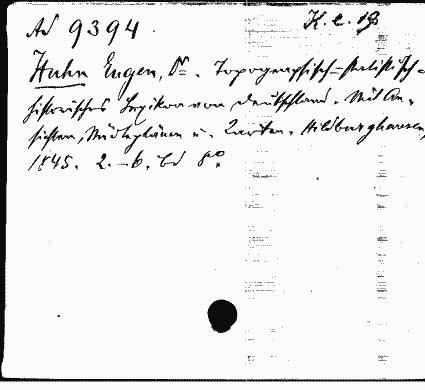 Ad 9394. K. e. 19
Huhn Eugen, Dr. Topographisch-statistisch-
historisches Lexikon von Deutschland. Mit An-
sichten, Städteplänen u. Karten. Hildburghausen,
1845. 2.-6. Bd 8o.